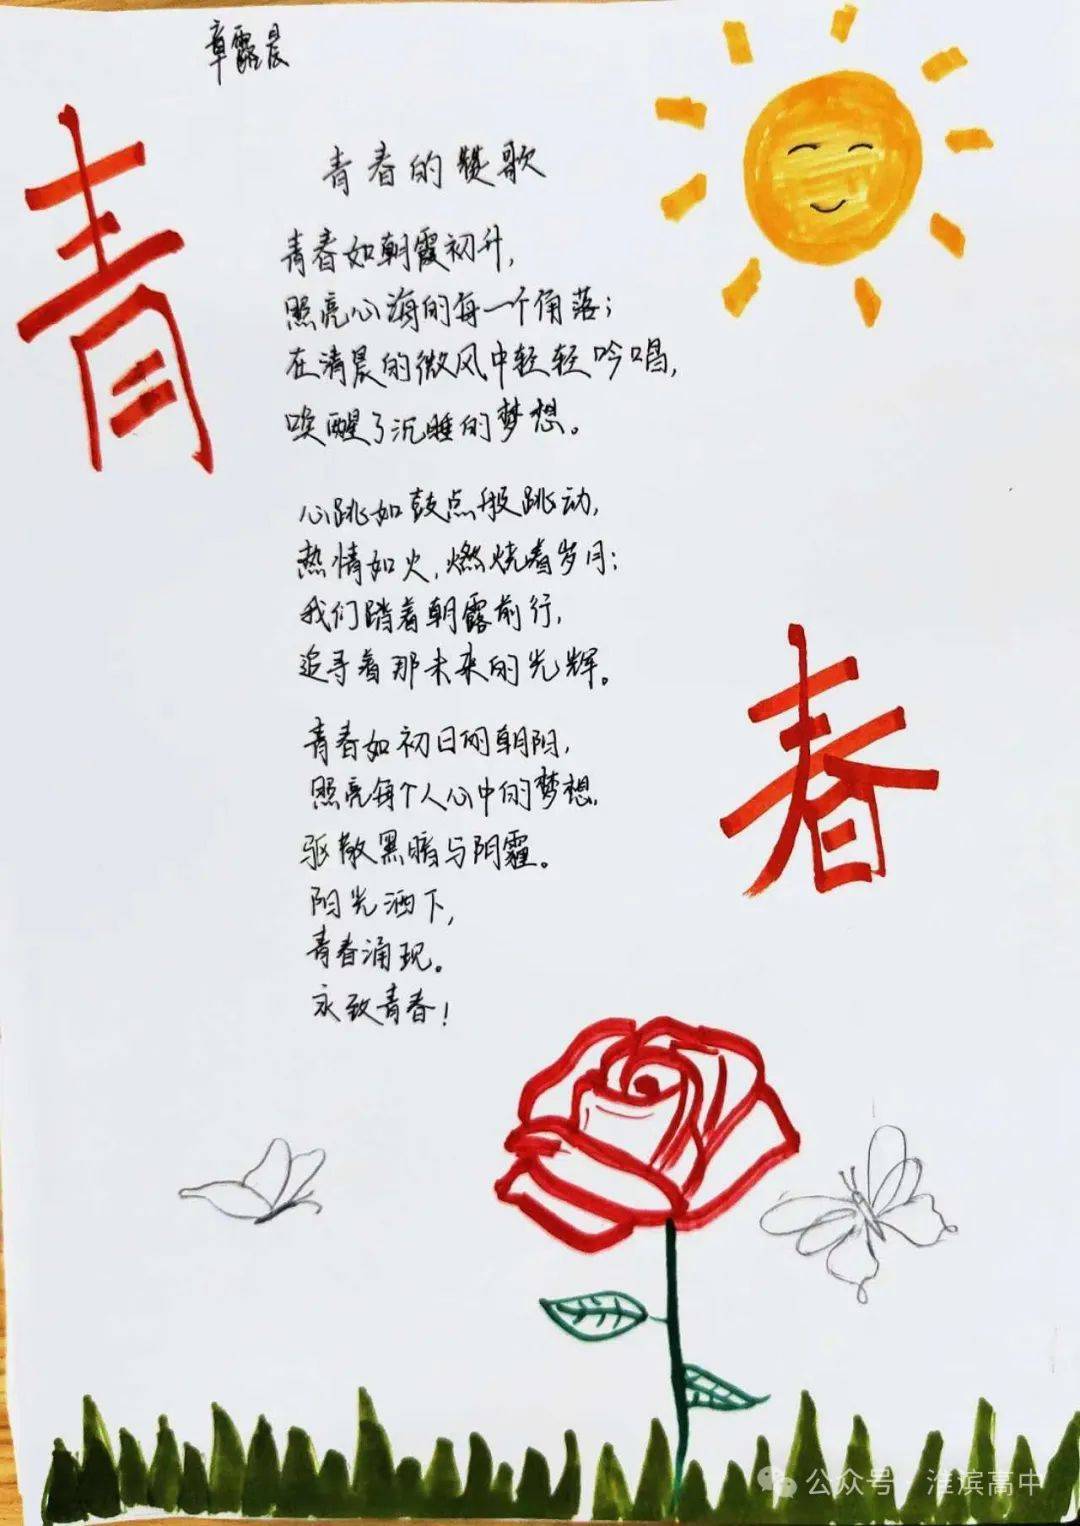 章露晨
青
青春的赞歌
青春如朝霞初升,
照亮心海的每一个角落;
在清晨的微风中轻轻吟唱,
唤醒了沉睡的梦想。
心跳如鼓点般跳动,
热情如火,燃烧着岁月;
我们踏着朝露前行,
追寻着那未来的光辉。
春
青春如初日的朝阳,
照亮每个人心中的梦想,
驱散黑暗与阴霾。
阳光洒下,
青春涌现。
永致青春!
公众号·淮滨高中